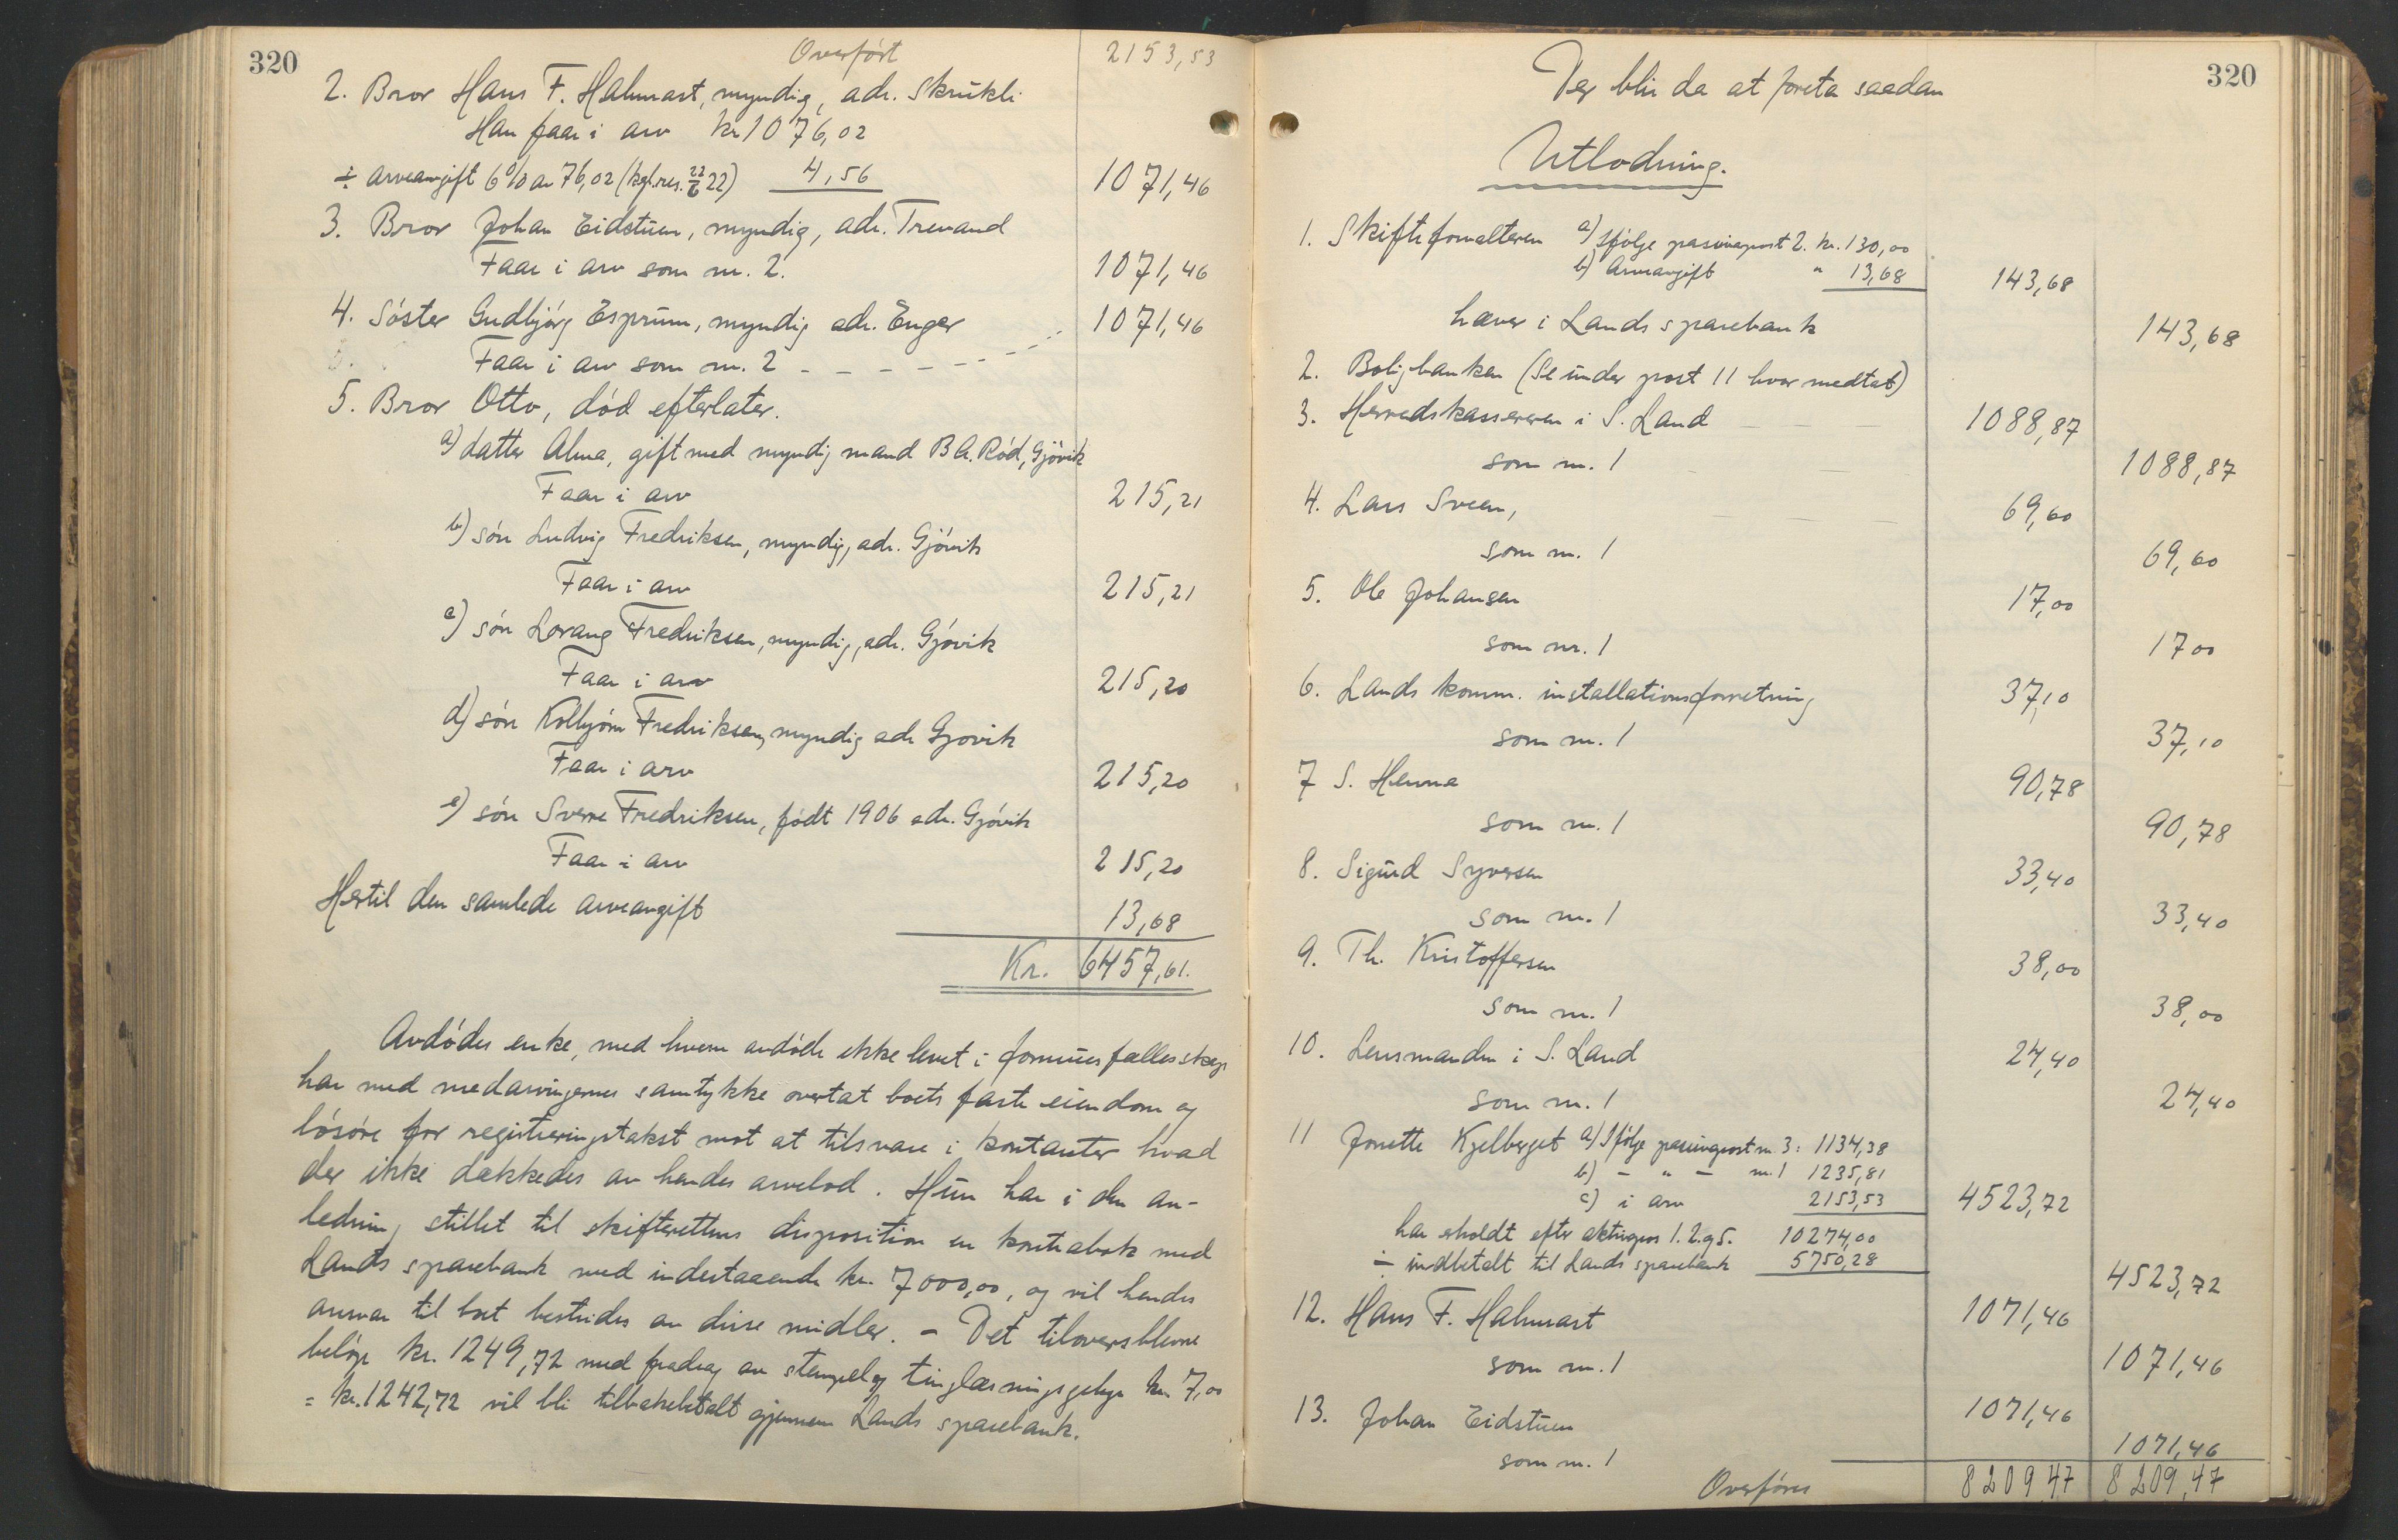 320
Overført 2153,53
2. Bror Hans F. Halmrast, myndig, adr. Skrukli
Han faar i arv kr 1076,02
÷ arveavgift 6% av 76,02 (kgl. res. 22/6 22) 4,56 1071,46
3. Bror Johan Eidstuen, myndig, adr. Trevand
Faar i arv som nr. 2. 1071,46
4. Søster Gudbjørg Esprum, myndig adr. Enger 1071,46
Faar i arv som nr. 2
5. Bror Otto, død efterlater.
a) datter Alma, gift med myndig mand B.A. Rød, Gjøvik
Faar i arv 215,21
b) søn Ludvig Fredriksen, myndig, adr. Gjøvik
Faar i arv 215,21
c) søn Lorang Fredriksen, myndig, adr. Gjøvik
Faar i arv 215,20
d) søn Kolbjørn Fredriksen, myndig adr Gjøvik
Faar i arv 215,20
e) søn Sverre Fredriksen, født 1906 adr. Gjøvik
Faar i arv 215,20
Hertil den samlede arveavgift 13,68
Kr. 6457,61.
Avdødes enke, med hvem avdøde ikke levet i formuesfællesskap
har med medarvingernes samtykke overtat boets faste eiendom og
løsøre for registreringstakst mot at tilsvare i kontanter hvad
der ikke dækkedes av hendes arvelod. Hun har i den an-
ledning stillet til skifterettens disposition en kontrabok med
Lands sparebank med indestaaende kr. 7000,00, og vil hendes
ansvar til boet bestrides av disse midler. – Det tiloversblevne
beløp kr. 1249,72 med fradrag av stempel og tinglæsningsgebyr kr. 7,00
= kr. 1242,72 vil bli tilbakebetalt gjennem Lands sparebank.
320
Der blir da at foreta saadan
Utlodning.
1. Skifteforvalteren a) Ifølge passivapost 2. kr. 130,00
b) Arveavgift " 13,68 143,68
hæver i Lands sparebank 143,68
2. Boligbanken (Se under post 11 hvor medtat)
3. Herredskassereren i S. Land 1088,87
som nr. 1 1088,87
4. Lars Sveen, 69,60
som nr. 1 69,60
5. Ole Johansen 17,00
som nr. 1 17 00
6. Lands komm. installationsforretning 37,10
som nr. 1 37,10
7 S. Henna 90,78
som nr. 1 90,78
8. Sigurd Syversen 33,40
som nr. 1 33,40
9. Th. Kristoffersen 38,00
som nr. 1 38,00
10. Lensmanden i S. Land 24,40
som nr. 1 24,40
11 Jonette Kjelberget a) Ifølge passivapost nr 3: 1134,38
b) – " – nr. 1 1235,81
c) i arv 2153,53 4523,72
har erholdt efter aktivapos 1. 2. og 5. 10274,00
÷ indbetalt til Lands sparebank 5750,28 4523,72
12. Hans F. Halmrast 1071,46
som nr. 1 1071,46
13. Johan Eidstuen 1071,46
som nr. 1 1071,46
Overføres 8209,47 8209,47